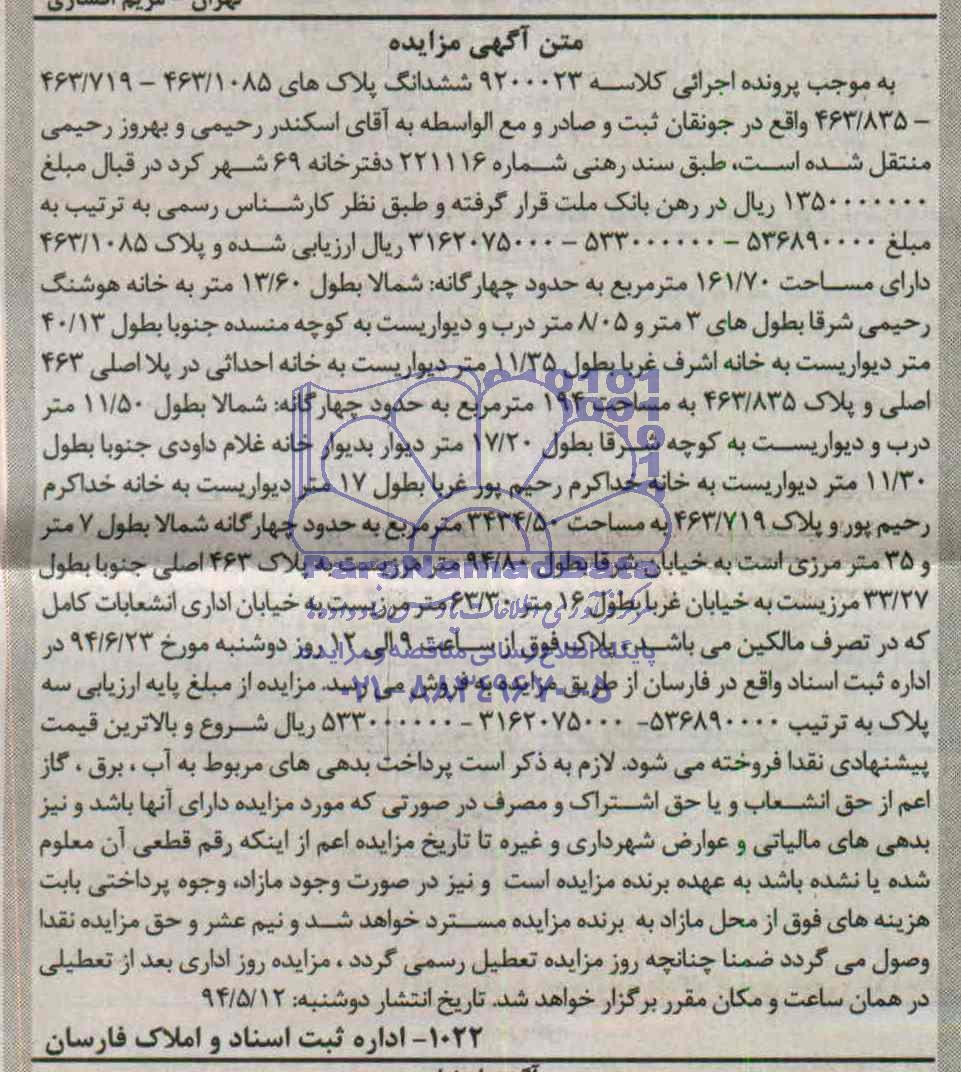 تهران - مریم افشاری
متن آگهی مزایده
به موجب پرونده اجرائی کلاسه ۹۲۰۰۰۲۳ ششدانگ پلاک های ۴۶۳/۱۰۸۵ – ۴۶۳/۷۱۹
– ۴۶۳/۸۳۵ واقع در جونقان ثبت و صادر و مع الواسطه به آقای اسکندر رحیمی و بهروز رحیمی
منتقل شده است، طبق سند رهنی شماره ۲۲۱۱۱۶ دفترخانه ۶۹ شهر کرد در قبال مبلغ
۱۳۵۰۰۰۰۰۰۰ ریال در رهن بانک ملت قرار گرفته و طبق نظر کارشناس رسمی به ترتیب به
مبلغ ۵۳۶۸۹۰۰۰۰ – ۵۳۳۰۰۰۰۰۰ – ۳۱۶۲۰۷۵۰۰۰ ریال ارزیابی شده و پلاک ۴۶۳/۱۰۸۵
دارای مساحت ۱۶۱/۷۰ مترمربع به حدود چهارگانه: شمالا بطول ۱۳/۶۰ متر به خانه هوشنگ
رحیمی شرقا بطول های ۳ متر و ۸/۰۵ متر درب و دیواریست به کوچه منسده جنوبا بطول ۴۰/۱۳
متر دیواریست به خانه اشرف غربا بطول ۱۱/۳۵ متر دیواریست به خانه احداثی در پلا اصلی ۴۶۳
اصلی و پلاک ۴۶۳/۸۳۵ به مساحت ۱۹۴ مترمربع به حدود چهارگانه: شمالا بطول ۱۱/۵۰ متر
درب و دیواریست به کوچه شرقا بطول ۱۷/۲۰ متر دیوار بدیوار خانه غلام داودی جنوبا بطول
۱۱/۳۰ متر دیواریست به خانه خداکرم رحیم پور غربا بطول ۱۷ متر دیواریست به خانه خداکرم
رحیم پور و پلاک ۴۶۳/۷۱۹ به مساحت ۳۴۳۴/۵۰ مترمربع به حدود چهارگانه شمالا بطول ۷ متر
و ۳۵ متر مرزی است به خیابان شرقا بطول ۹۴/۸۰ متر مرزیست به پلاک ۴۶۳ اصلی جنوبا بطول
۳۳/۲۷ مرزیست به خیابان غربا بطول ۱۶ متر ۶۳/۳۰ متر مرزیست به خیابان اداری انشعابات کامل
که در تصرف مالکین می باشد، پلاک فوق از ساعت ۹ الی ۱۲ روز دوشنبه مورخ ۹۴/۶/۲۳ در
اداره ثبت اسناد واقع در فارسان از طریق مزایده به فروش می رسد. مزایده از مبلغ پایه ارزیابی سه
پلاک به ترتیب ۵۳۶۸۹۰۰۰۰– ۳۱۶۲۰۷۵۰۰۰ – ۵۳۳۰۰۰۰۰۰ ریال شروع و بالاترین قیمت
پیشنهادی نقدا فروخته می شود. لازم به ذکر است پرداخت بدهی های مربوط به آب ، برق ، گاز
اعم از حق انشعاب و یا حق اشتراک و مصرف در صورتی که مورد مزایده دارای آنها باشد و نیز
بدهی های مالیاتی و عوارض شهرداری و غیره تا تاریخ مزایده اعم از اینکه رقم قطعی آن معلوم
شده یا نشده باشد به عهده برنده مزایده است و نیز در صورت وجود مازاد، وجوه پرداختی بابت
هزینه های فوق از محل مازاد به برنده مزایده مسترد خواهد شد و نیم عشر و حق مزایده نقدا
وصول می گردد ضمنا چنانچه روز مزایده تعطیل رسمی گردد ، مزایده روز اداری بعد از تعطیلی
در همان ساعت و مکان مقرر برگزار خواهد شد. تاریخ انتشار دوشنبه: ۹۴/۵/۱۲
۱۰۲۲- اداره ثبت اسناد و املاک فارسان
ParsNamadData
پایگاه اطلاع رسانی مناقصه و مزایده
۰۲۱-۸۸۳۴۹۶۷۰-۵